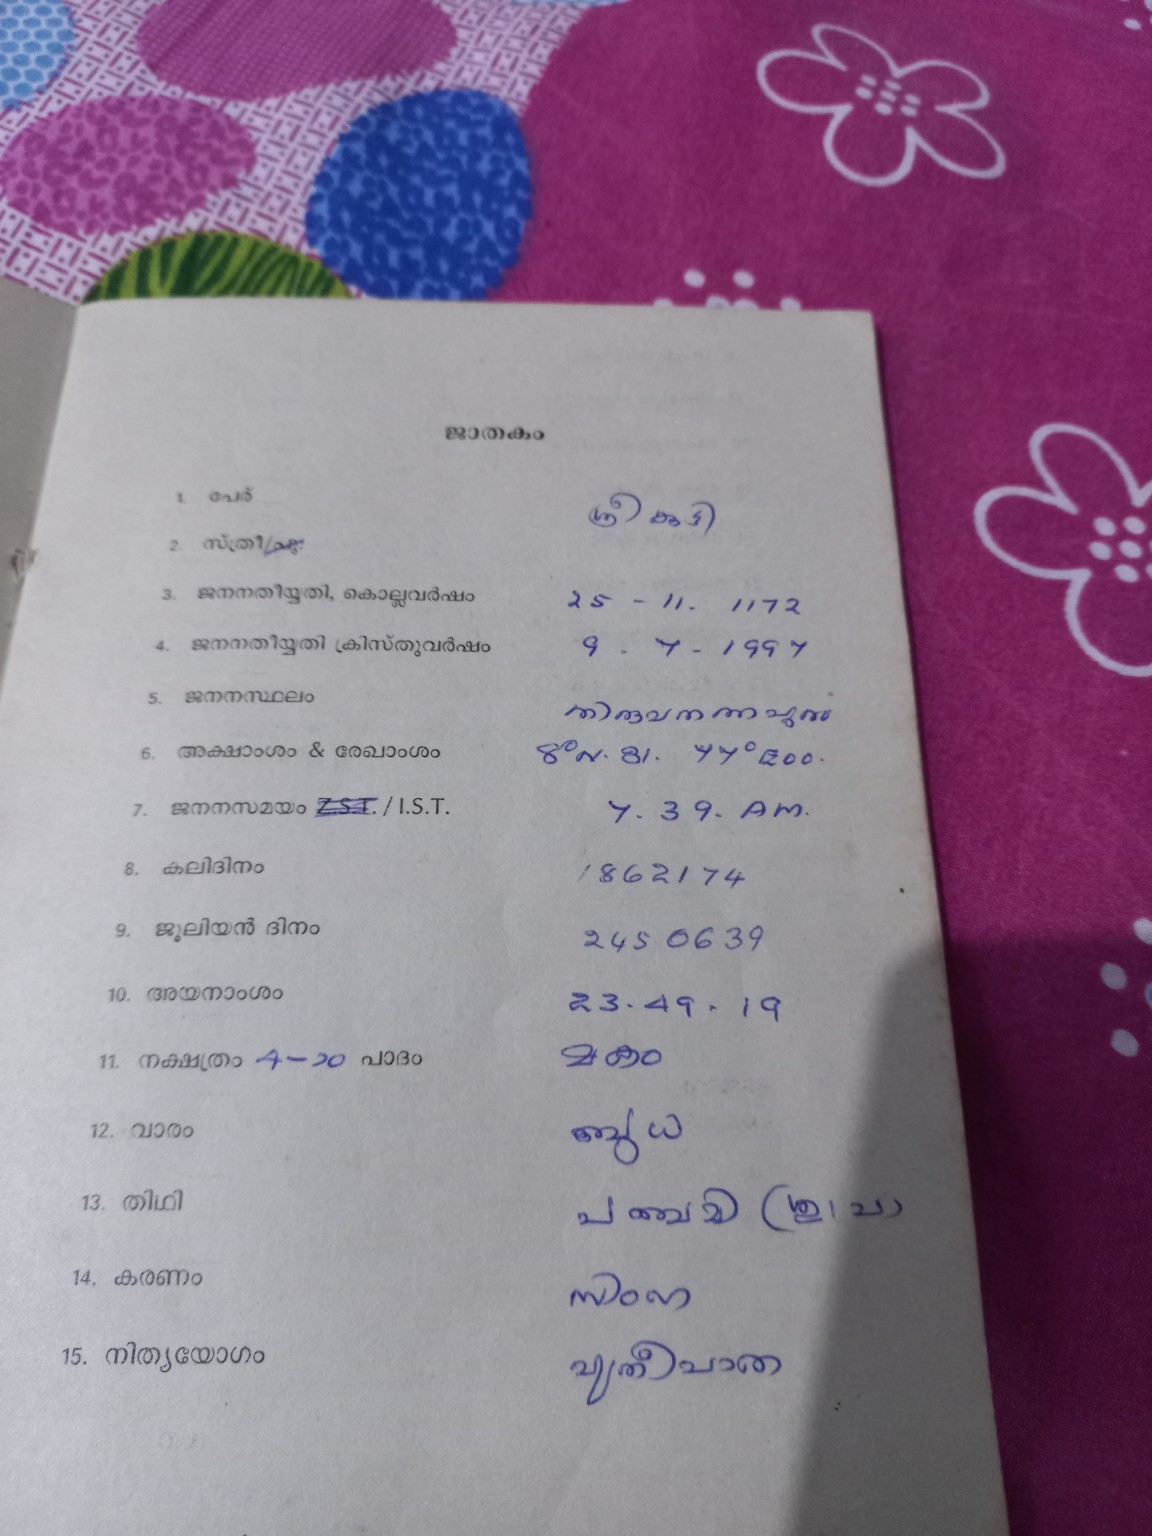 ജാതകം
1. പേര് ശ്രീകുട്ടി
2. സ്ത്രീ/പു:
3. ജനനതീയ്യതി, കൊല്ലവർഷം 25 - 11. 1172
4. ജനനതീയ്യതി ക്രിസ്തുവർഷം 9 - 7 - 1997
5. ജനനസ്ഥലം തിരുവനന്തപുരം
6. അക്ഷാംശം & രേഖാംശം 8°N. 31. 77°E00.
7. ജനനസമയം Z.S.T. / I.S.T. 7. 39. AM.
8. കലിദിനം 1862174
9. ജൂലിയൻ ദിനം 2450639
10. അയനാംശം 23. 49. 19
11. നക്ഷത്രം 4-ാം പാദം മകം
12. വാരം ബുധ
13. തിഥി പഞ്ചമി
14. കരണം സിംഹ
15. നിത്യയോഗം വ്യതീപാത